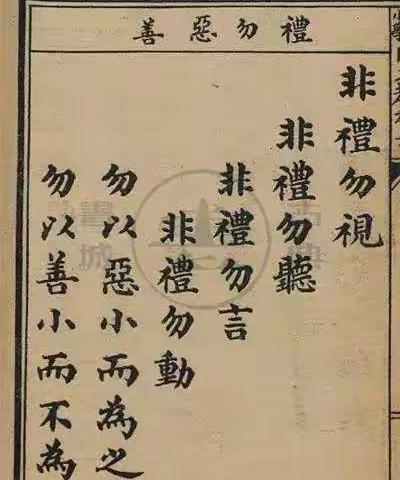 禮勿惡善
非禮勿視
非禮勿聽
非禮勿言
非禮勿動
勿以惡小而為之
勿以善小而不為